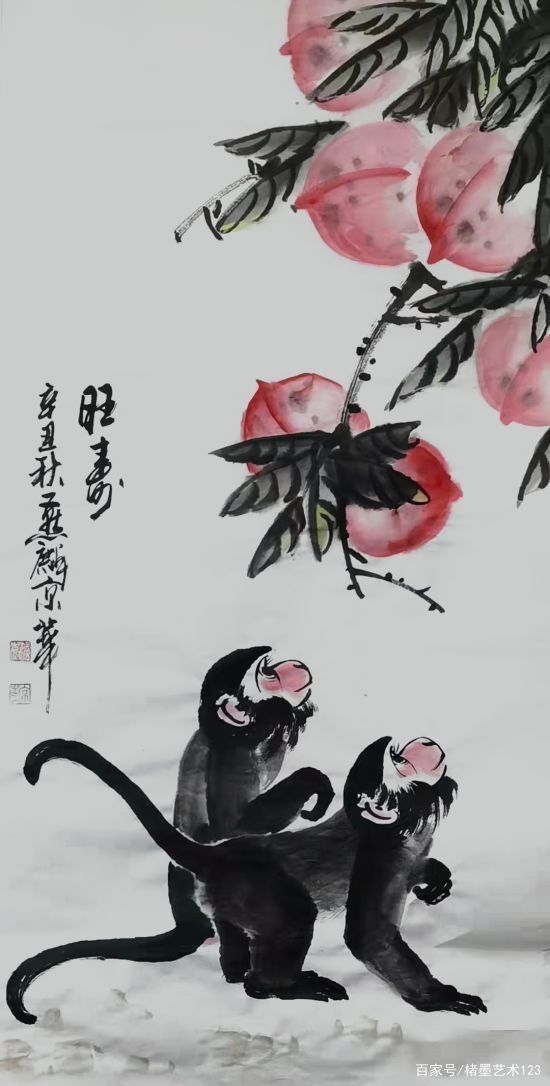 旺寿
辛丑秋燕麟京華
百家号/楮墨艺术123